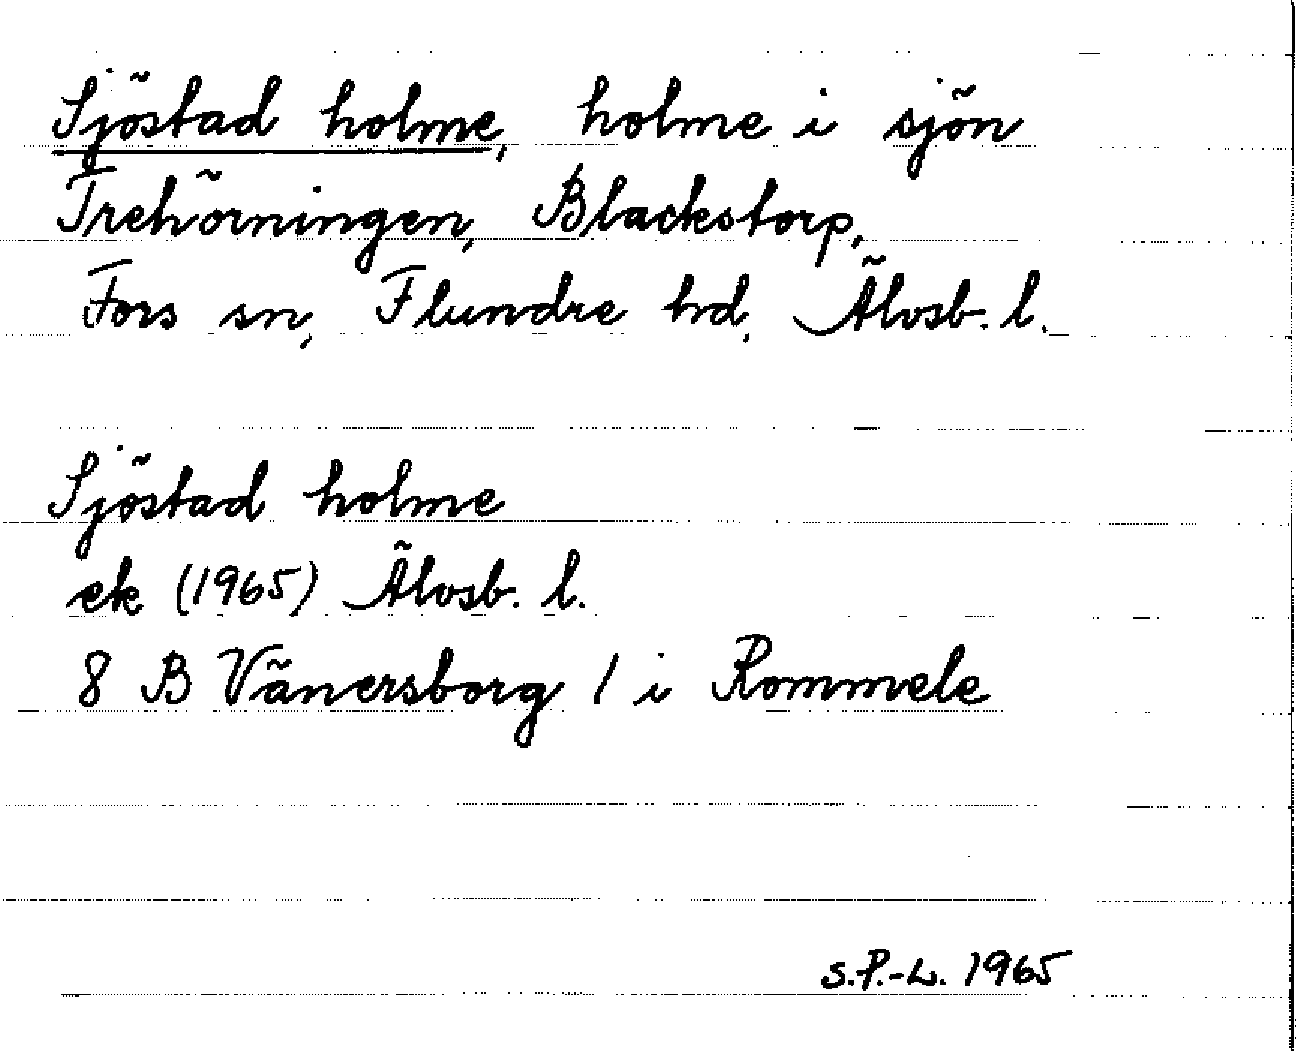 Sjöstad holme, holme i sjön
Trehörningen, Blackstorp,
Fors sn, Flundre hd, Älvsb. l.
Sjöstad holme
ek (1965) Älvsb. l.
8 B Vänersborg 1 i Rommele
S.P.-L. 1965